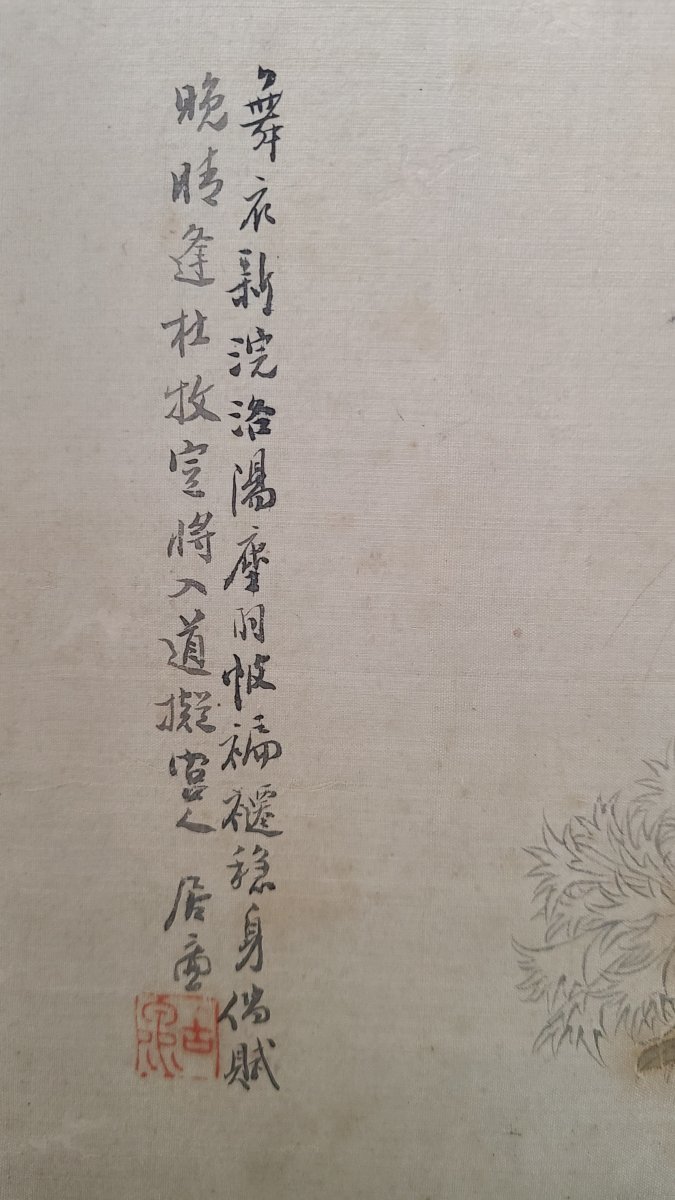 舞衣新浣洛陽塵羽帔褊褼穩身倘賦
晚晴逢杜牧定將入道擬宮人 居廉
古泉